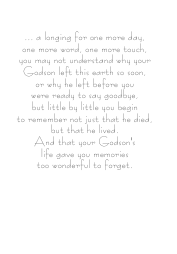 ... a longing for one more day,
one more word, one more touch,
you may not understand why your
Godson left this earth so soon,
or why he left before you
were ready to say goodbye,
but little by little you begin
to remember not just that he died,
but that he lived.
And that your Godson's
life gave you memories
too wonderful to forget.